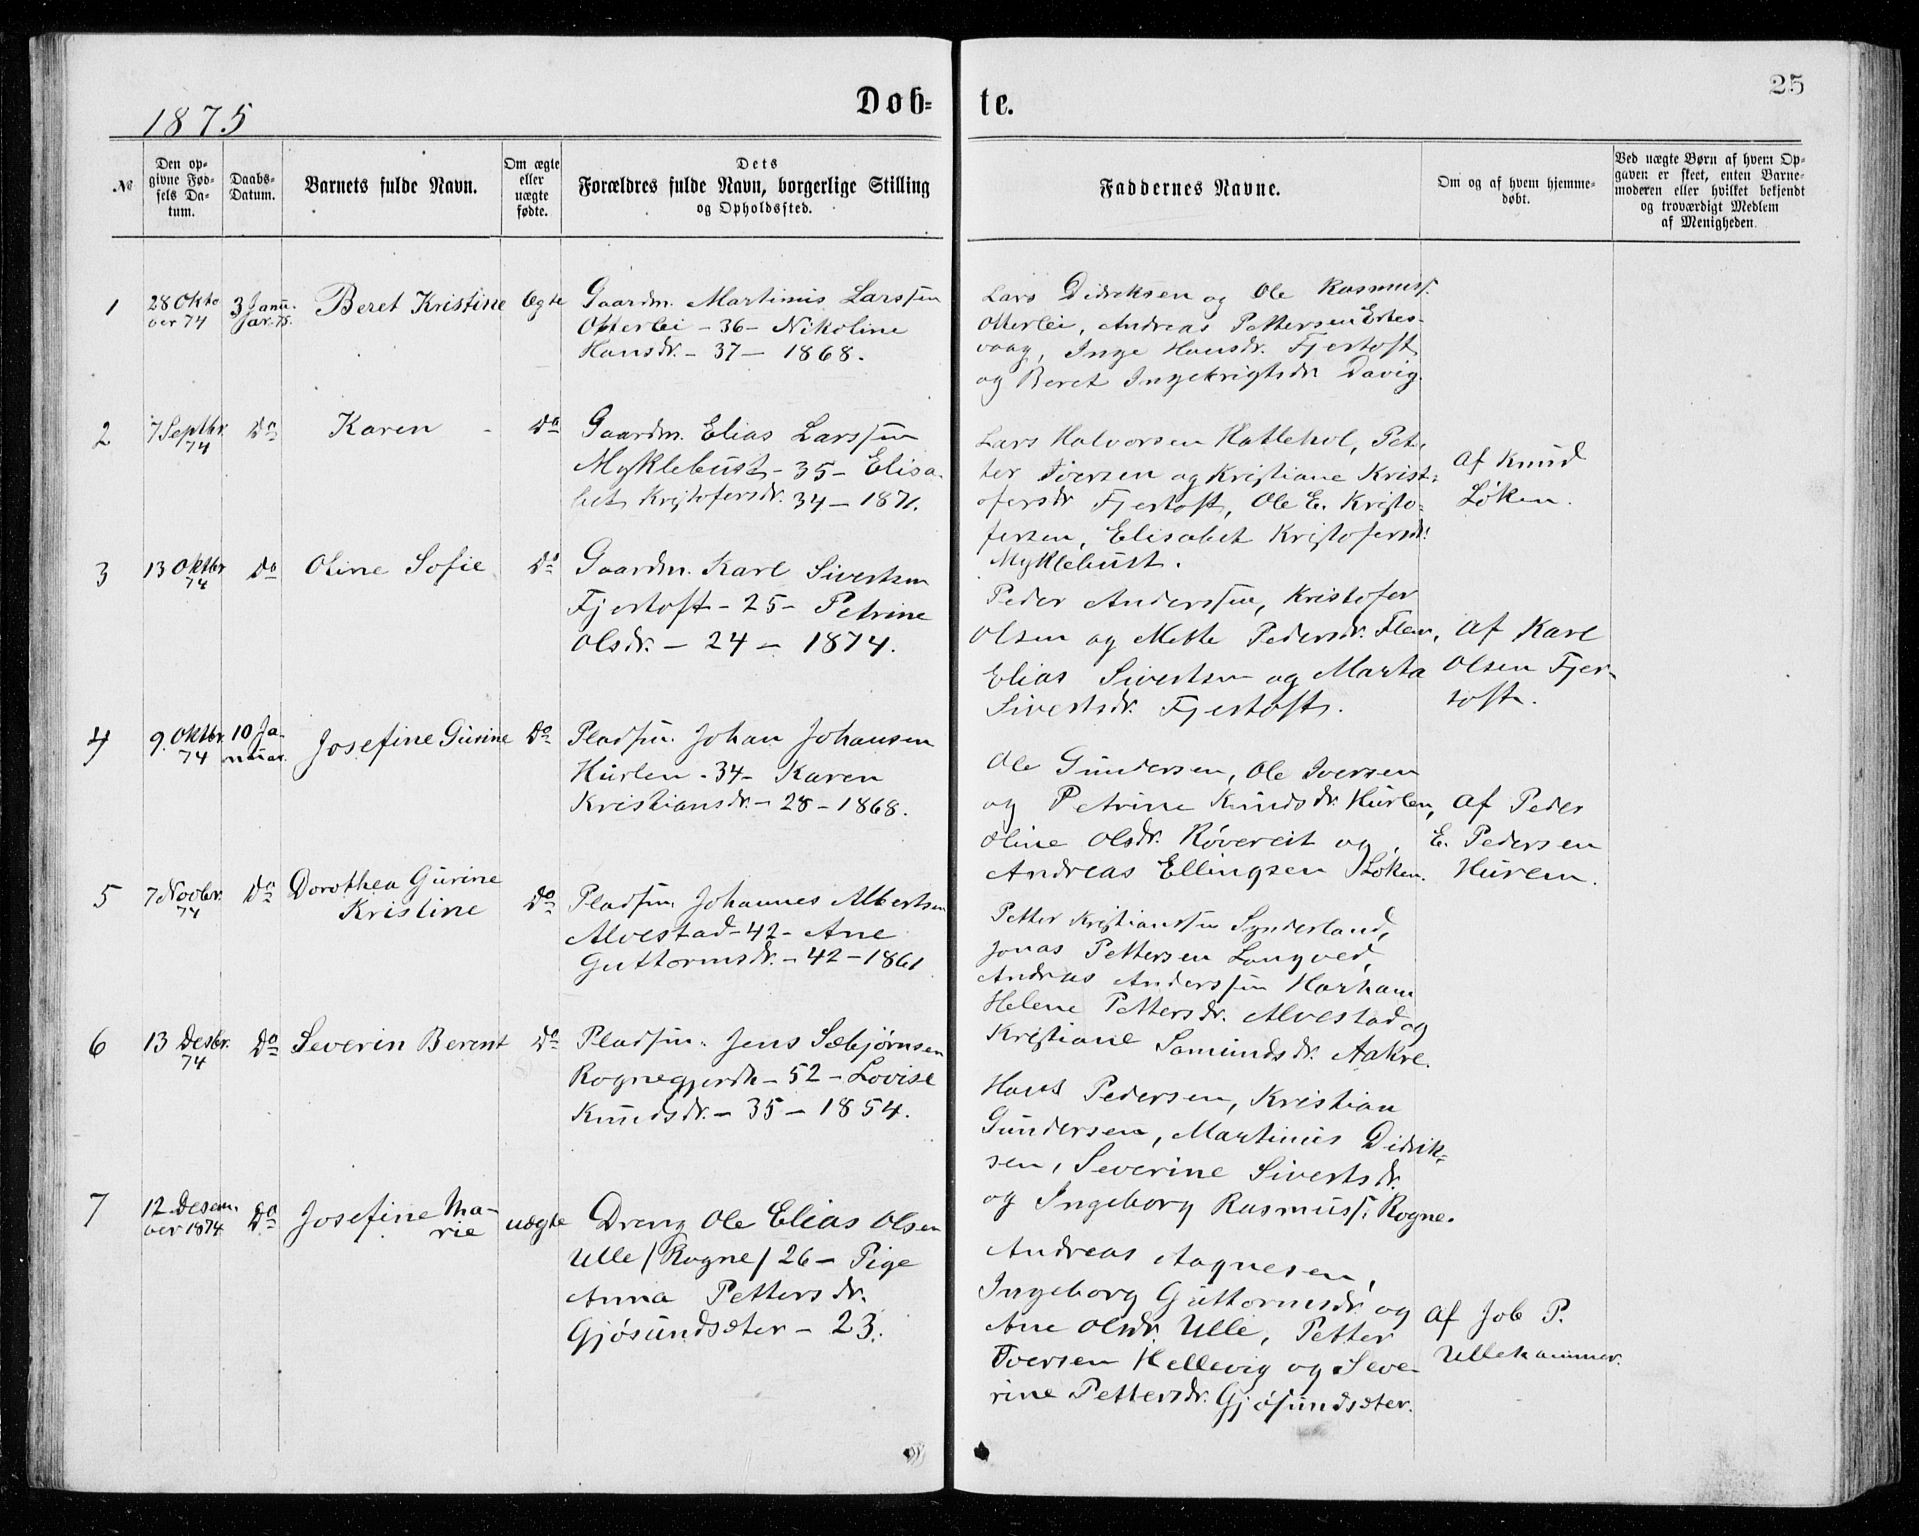 25
1875
Døb-
te.
№
Den op-
givne Fød-
sels Da-
tum.
Daabs-
Datum.
Barnets fulde Navn.
Om ægte
eller
uægte
fødte.
Dets
Forældres fulde Navn, borgerlige Stilling
og Opholdssted.
Faddernes Navne.
Om og af hvem hjemme-
døbt.
Ved uægte Børn af hvem Op-
gaven er skeet, enten Barne-
moderen eller hvilket bekjendt
og troværdigt Medlem
af Menigheden.
1
28 Okto
ber 74
3 Janu-
ar 75.
Beret Kristine
Ægte
Gaardm. Martinus Larssen
Otterlei - 36 - Nikoline
Hansdr. - 37 - 1868.
Lars Didriksen og Ole Rasmuss.
Otterlei, Andreas Pettersen Ertes-
vaag, Inge Hansdr. Fjertoft
og Beret Ingebrigtsdr Davig.
2
7 Septbr
74
Do
Karen
Do
Gaardm. Elias Larssen
Myklebust - 35 - Elisa-
bet Kristofersdr. 34 - 1871.
Lars Halvorsen Hattehol, Pet-
ter Iversen og Kristiane Krist-
ofersdr Fjertoft, Ole E. Kristo-
fersen, Elisabet Kristofersdr.
Myklebust.
Af Knud
Løken.
3
13 Oktbr
74
Do
Oline Sofie
Do
Gaardm. Karl Sivertsen
Fjertoft - 25 - Petrine
Olsdr. - 24 - 1874.
Peder Anderssen, Kristofer
Olsen og Mette Pedersdr. Flem,
Elias Sivertsen og Marta
Sivertsdr. Fjertoft.
Af Karl
Olsen Fjer-
toft.
4
9. Oktbr.
74
10 Ja-
nuar.
Josefine Gurine
Do
Pladsm. Johan Johansen
Hurlen - 34 - Karen
Kristiansdr. - 28 - 1868.
Ole Gundersen, Ole Iversen
og Petrine Knudsdr. Hurlen,
Oline Olsdr. Røvereit og
Andreas Ellingsen Løken.
Af Peder
E. Pedersen
Hurlen.
5
7 Novbr.
74
Do
Dorothea Gurine
Kristine
Do
Pladsm. Johannes Albertsen
Alvestad - 42 - Ane
Guttormsdr. - 42 - 1861
Petter Kristianssen Synderland,
Jonas Pettersen Longved,
Andreas Anderssen Harham
Helene Pettersdr. Alvestad og
Kristiane Samundsdr. Aakre.
6
13 Desbr.
74
Do
Severin Berent
Do
Pladsm. Jens Sæbjørnsen
Rognegjerde - 52 - Lovise
Knudsdr. - 35 - 1854.
Hans Pedersen, Kristian
Gundersen, Martinus Didrik-
sen, Severine Sivertsdr.
og Ingeborg Rasmuss. Rogne.
7
12 Desem-
ber 1874
Do
Josefine Ma-
rie
uægte
Dreng Ole Elias Olsen
Ulle /Rogne/ 26 - Pige
Anna Pettersdr.
Gjøsundsæter - 23.
Andreas Aagnesen,
Ingeborg Guttormsdr. og
Ane Olsdr. Ulle, Petter
Iversen Hellevig og Seve-
rine Pettersdr. Gjøsundsæter.
Af Job P.
Ullehammer.